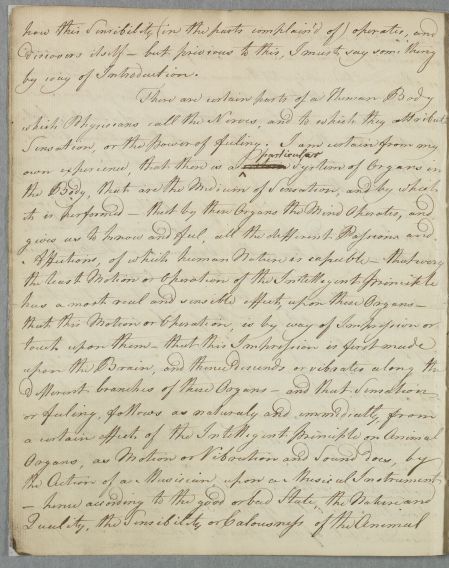 how this Sensibility (in the parts complain'd of) operates, and
discovers itself — but previous to this, I must say something
by way of Introduction.
There are certain parts of a Human Body
which Physicians call the Nerves, and to which they attribute
Sensation, or the power of feeling. I am certain from my
own experience, that there is a particular System of Organs in
the Body, that are the Medium of Sensation, and by which
it is performed — that by these Organs the Mind operates, and
gives us to know and feel, all the different Passions and
Affections, of which human Nature is capable — that every
the least Motion or Operation of the Intelligent principle
has a most real and sensible effect, upon these Organs —
that this Motion or Operation, is by way of Impression or
touch upon them — that this Impression is first made
upon the Brain, and thence descends or vibrates along the
different branches of these Organs — and that Sensation
or feeling, follows as naturaly and immediatly, from
a certain effect of the Intelligent principle on Animal
Organs, as Motion or Vibration and Sound does, by
the Action of a Musician upon a Musical Instrument
— hence according to the good or bad State, the Nature and
Quality, the Sensibility or Calousness of the Animal